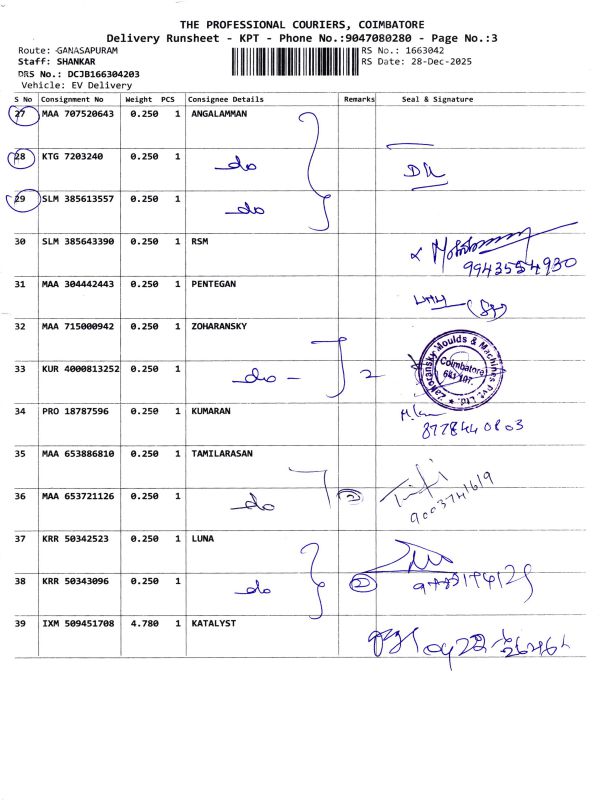 THE PROFESSIONAL COURIERS, COIMBATORE
Delivery Runsheet - KPT - Phone No.:9047080280 - Page No.:3
Route: GANASAPURAM RS No.: 1663042
Staff: SHANKAR RS Date: 28-Dec-2025
DRS No.: DCJB166304203
Vehicle: EV Delivery
S No Consignment No Weight PCS Consignee Details Remarks Seal & Signature
27 MAA 707520643 0.250 1 ANGALAMMAN
28 KTG 7203240 0.250 1 do
29 SLM 385613557 0.250 1 do
30 SLM 385643390 0.250 1 RSM
9943554930
31 MAA 304442443 0.250 1 PENTEGAN
32 MAA 715000942 0.250 1 ZOHARANSKY
33 KUR 4000813252 0.250 1 do - 2
Zahoransky Moulds & Machines Pvt. Ltd. ★
Coimbatore
641 107.
34 PRO 18787596 0.250 1 KUMARAN
8778440803
35 MAA 653886810 0.250 1 TAMILARASAN
36 MAA 653721126 0.250 1 do 2
9003741619
37 KRR 50342523 0.250 1 LUNA
38 KRR 50343096 0.250 1 do 2
39 IXM 509451708 4.780 1 KATALYST